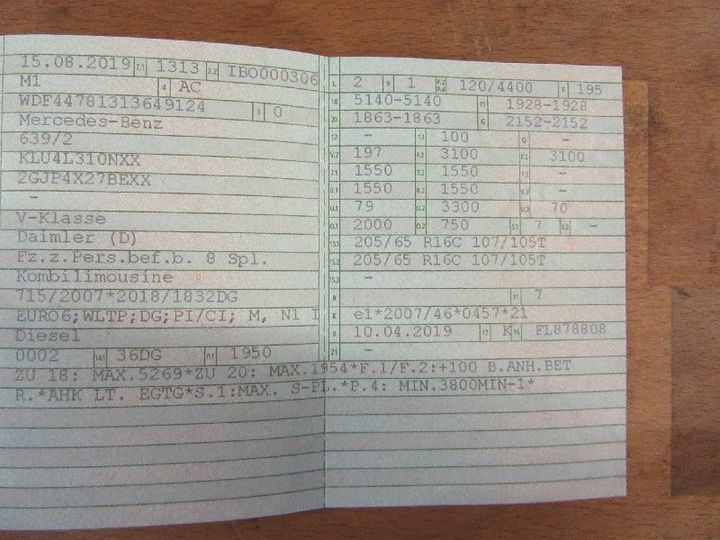 15.08.2019 2.1 1313 2.2 IBO000306
M1 4 AC
WDF44781313649124 3 0
Mercedes-Benz
639/2
KLU4L310NXX
2GJP4X27BEXX
–
V-Klasse
Daimler (D)
Fz.z.Pers.bef.b. 8 Spl.
Kombilimousine
715/2007*2018/1832DG
EURO6;WLTP;DG;PI/CI; M, N1 I
Diesel
0002 14.1 36DG P.1 1950
L 2 9 1 P.2 P.4 120/4400 T 195
18 5140-5140 19 1928-1928
20 1863-1863 G 2152-2152
12 – 13 100 Q –
V.7 197 F.1 3100 F.2 3100
7.1 1550 7.2 1550 7.3 –
8.1 1550 8.2 1550 8.3 –
U.1 79 U.2 3300 U.3 70
O.1 2000 O.2 750 S.1 7 S.2 –
15.1 205/65 R16C 107/105T
15.2 205/65 R16C 107/105T
15.3 –
R 11 7
K e1*2007/46*0457*21
6 10.04.2019 17 K 16 FL878808
21 –
ZU 18: MAX.5269*ZU 20: MAX.1954*F.1/F.2:+100 B.ANH.BET
R.*AHK LT. EGTG*S.1:MAX. S-PL.*P.4: MIN.3800MIN-1*